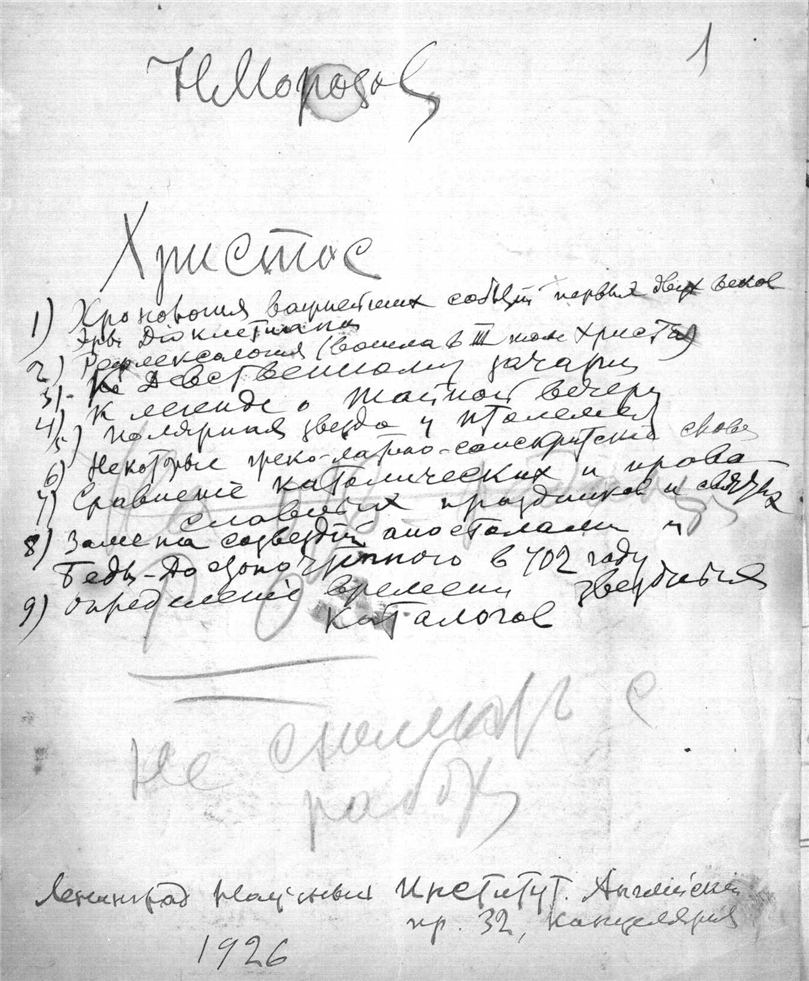 1
НМорозов
Христос
1) Хронология важнейших событий первых двух веков
эры Діоклетиана
2) Рефлексология (вошла в III том Христа)
3) - К девственному зачатию
4) К легенде о тайной вечери
5) Полярная звезда у Птолемея
6) Некоторые греко-латино-санскритские слова
7) Сравненіе католических и право
славных праздников и святых
8) Замена созвездий апостолами у
Беды-Достопочтенного в 702 году
9) Определеніе времени звездных
каталогов
Не
работ
Ленинград Научный Институт. Английский
пр. 32, Канцелярия
1926